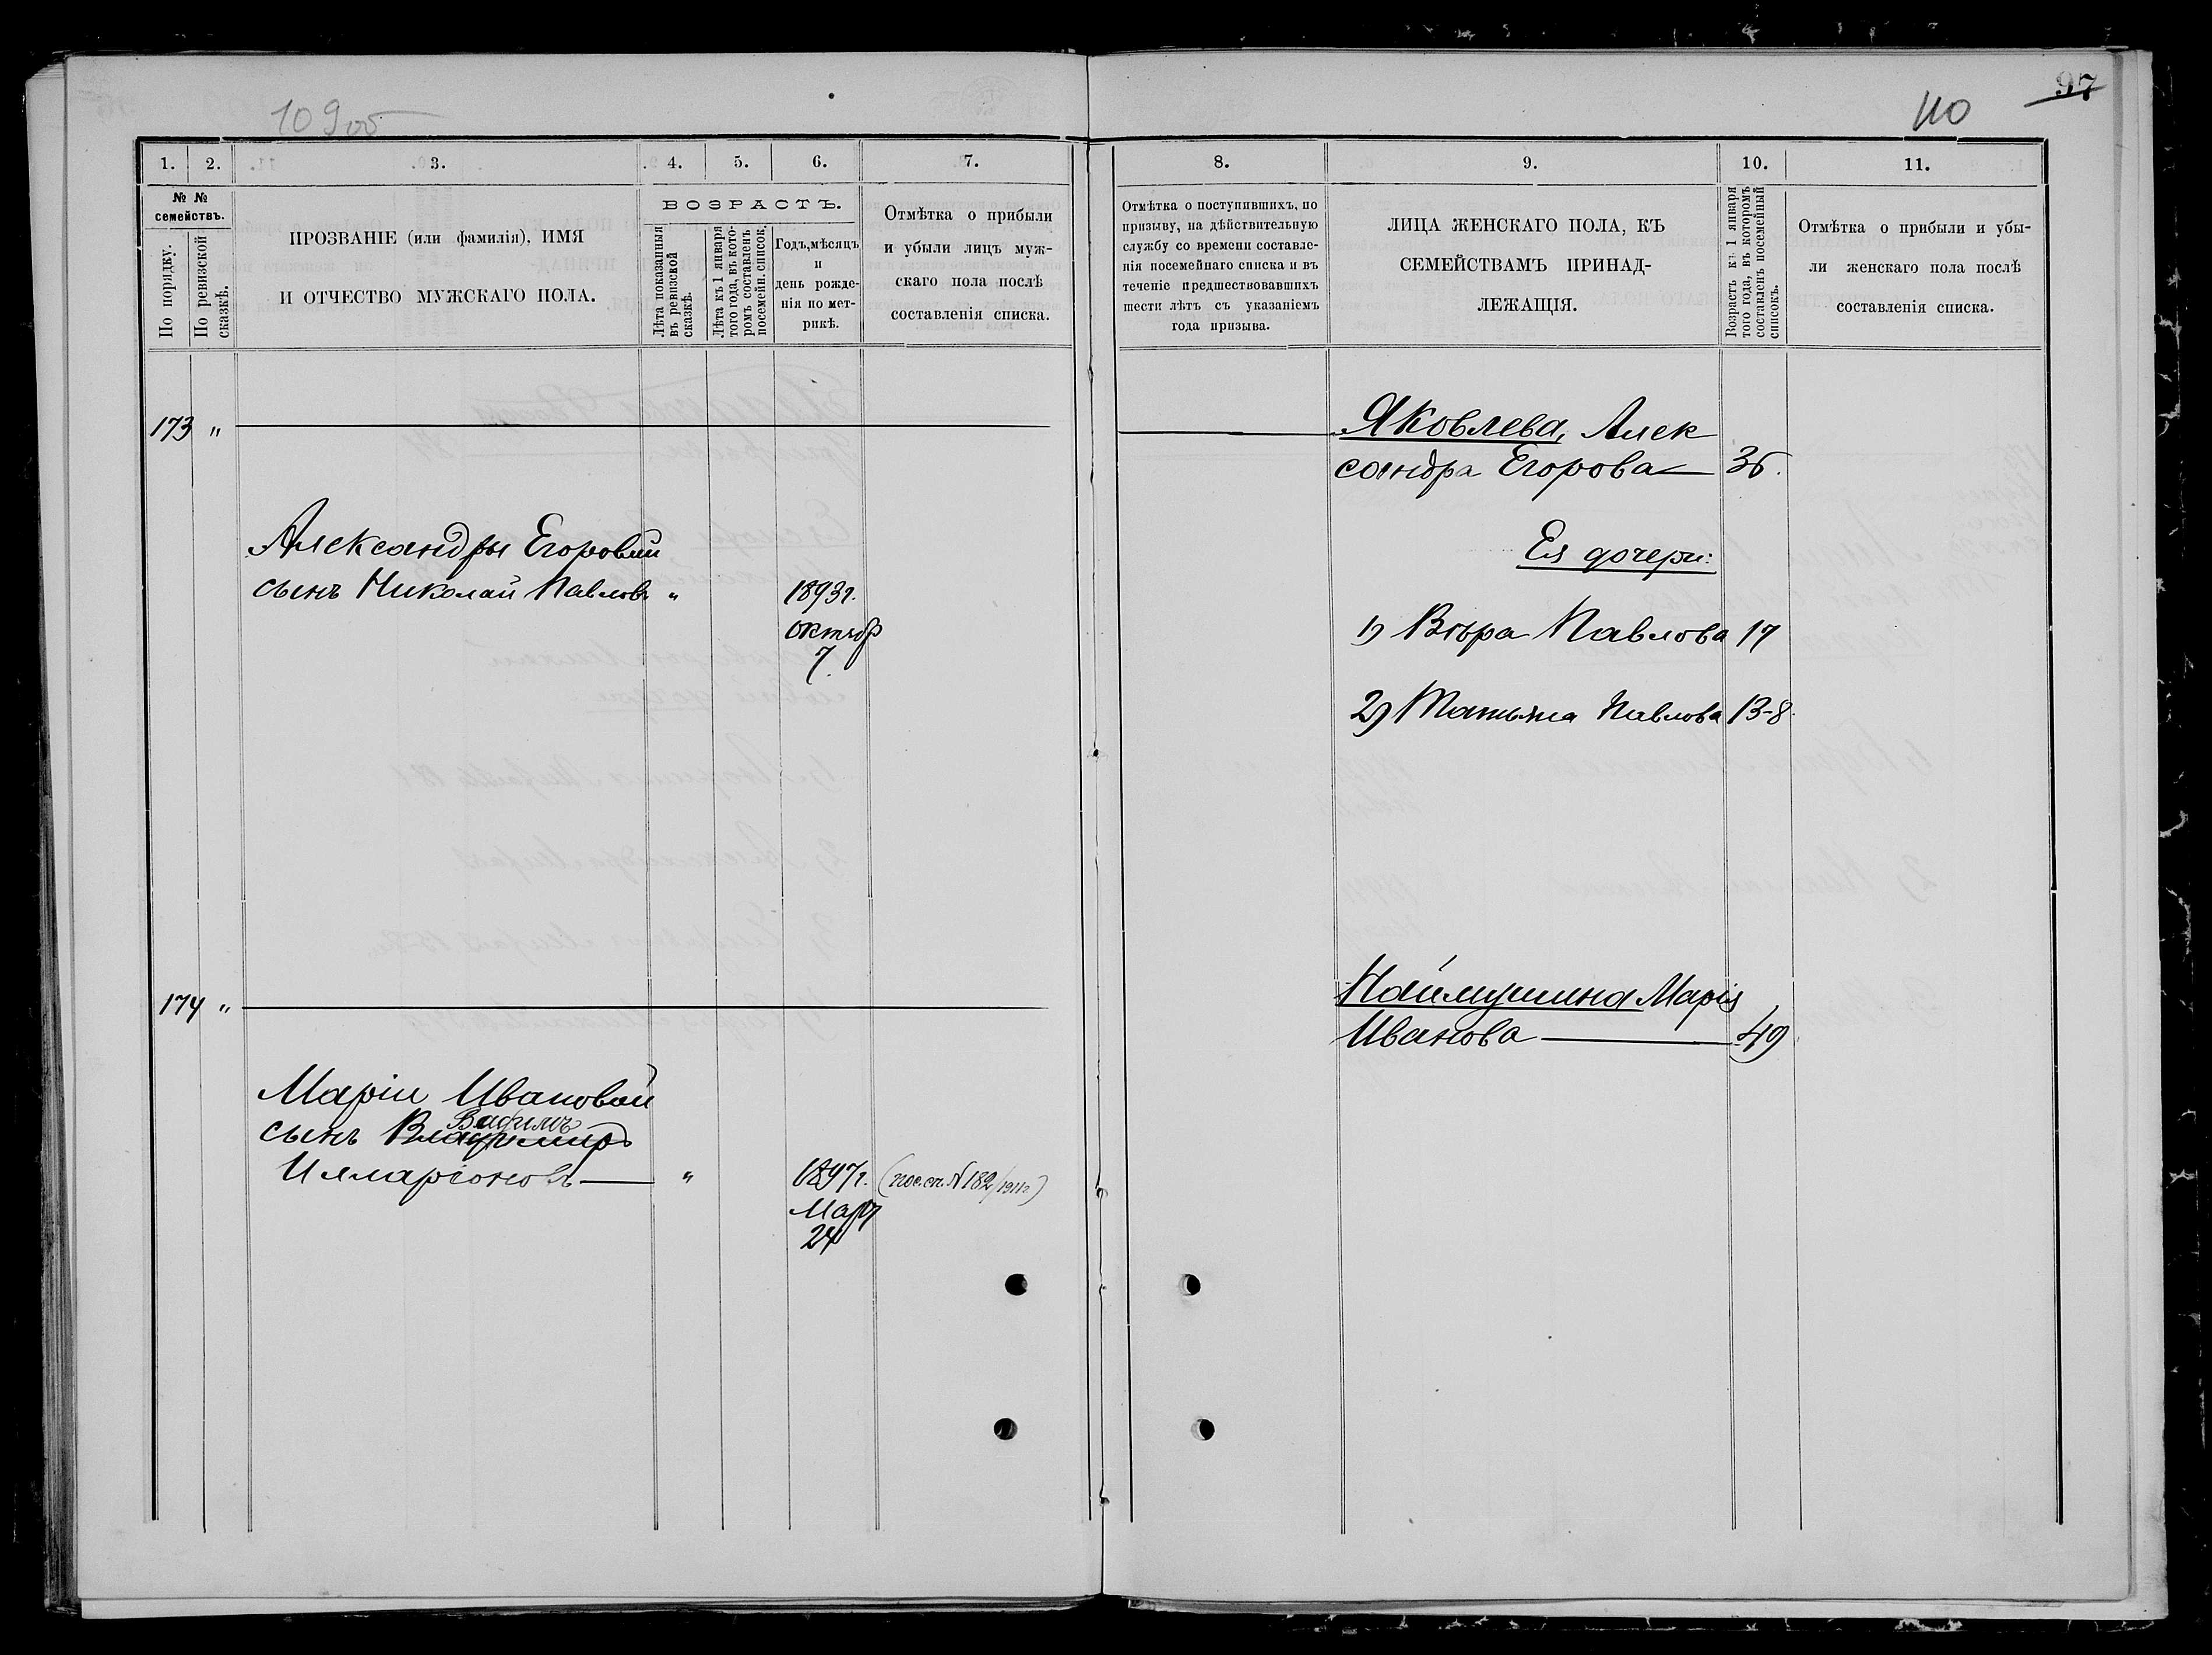 109об
1. 2. 3. 4. 5. 6. 7.
№ №
семействъ.
По порядку.
По ревизской
сказкѣ.
ПРОЗВАНІЕ (или фамилія), ИМЯ
И ОТЧЕСТВО МУЖСКАГО ПОЛА.
ВОЗРАСТЪ.
Лѣта показанныя
въ ревизской
сказкѣ.
Лѣта къ 1 января
того года, въ кото-
ромъ составленъ
посемейн. список.
Годъ, мѣсяцъ
и
день рожде-
нія по мет-
рикѣ.
Отмѣтка о прибыли
и убыли лицъ муж-
скаго пола послѣ
составленія списка.
173 "
Александры Егоровой
сынъ Николай Павловъ "
1893г.
октяб
7.
174 "
Маріи Ивановой
Вадимъ
сынъ Владимиръ
Илларіоновъ "
1897г. (пос. сп. №182/1911г)
Март
24
97
110
8. 9. 10. 11.
Отмѣтка о поступившихъ, по
призыву, на дѣйствительную
службу со времени составле-
нія посемейнаго списка и въ
теченіе предшествовавшихъ
шести лѣтъ съ указаніемъ
года призыва.
ЛИЦА ЖЕНСКАГО ПОЛА, КЪ
СЕМЕЙСТВАМЪ ПРИНАД-
ЛЕЖАЩІЯ.
Возрастъ къ 1 января
того года, въ которомъ
составленъ посемейный
списокъ.
Отмѣтка о прибыли и убы-
ли женскаго пола послѣ
составленія списка.
Яковлева, Алек
сандра Егорова
Ея дочери:
1) Вѣра Павлова 17
2) Татьяна Павлова 13-8.
Наймушина Марія
Иванова 49